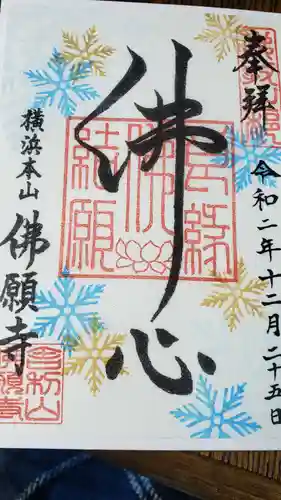 奉拝
令和二年十二月二十五日
佛心
横浜本山
佛願寺